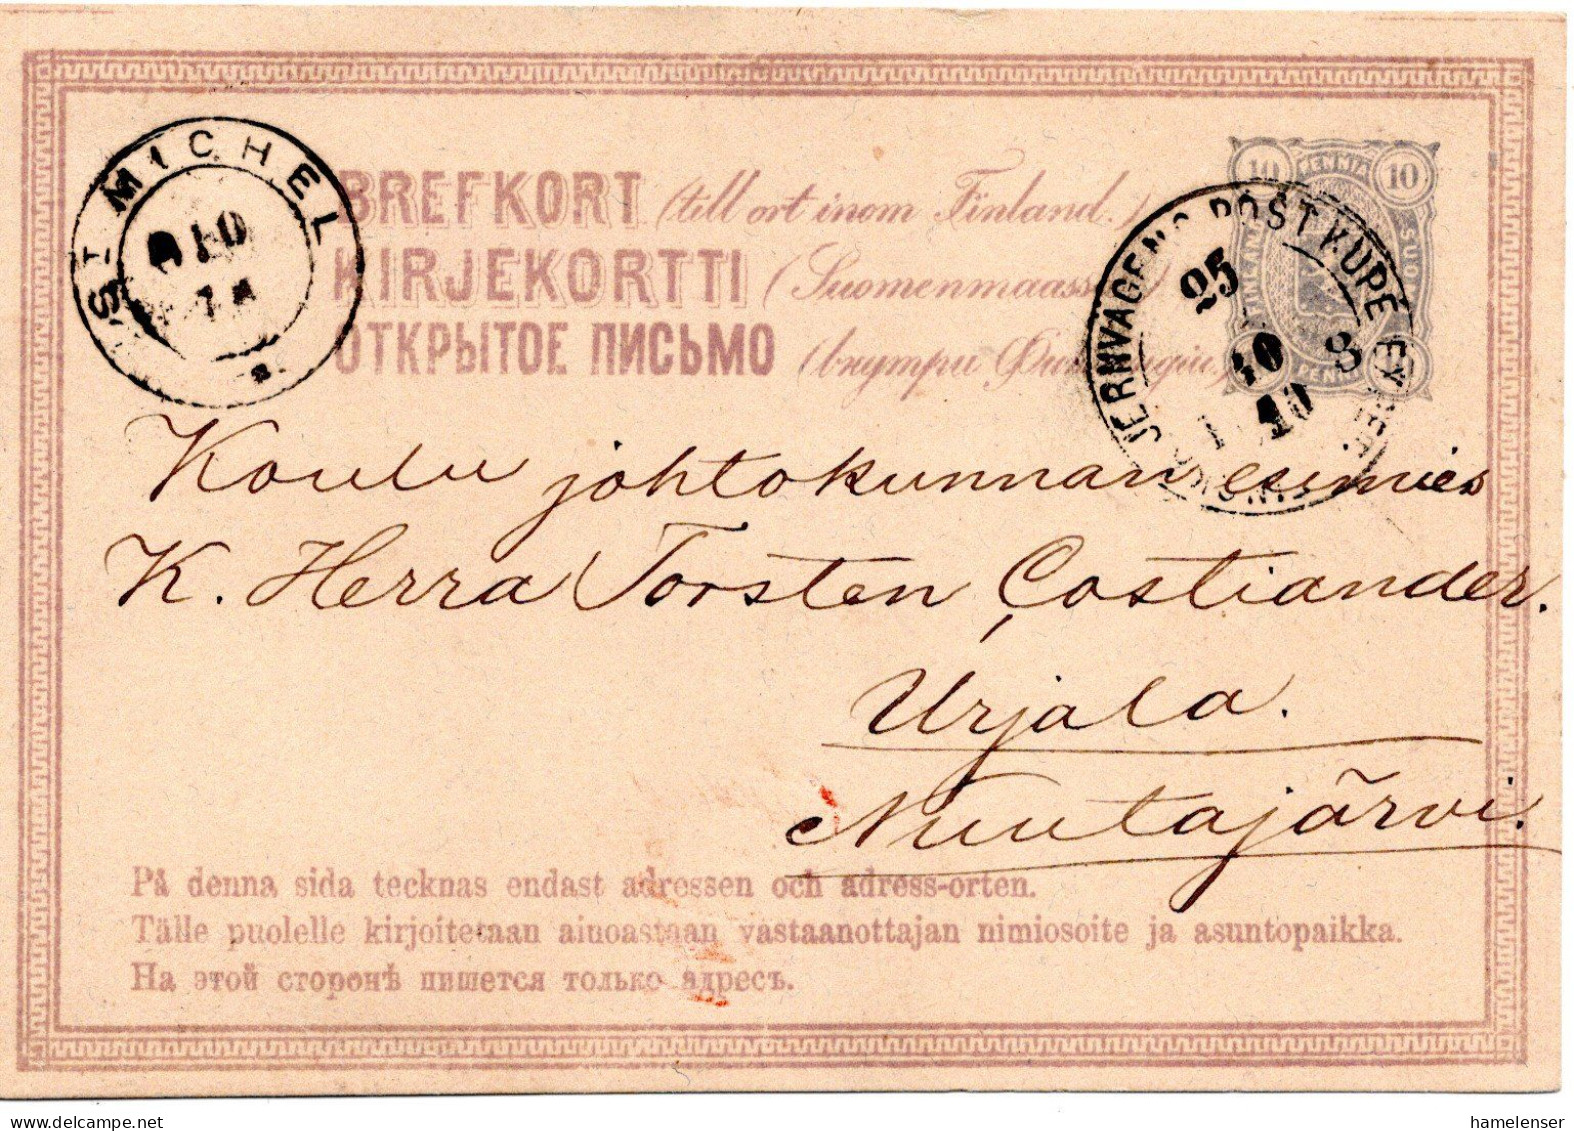 BREFKORT (till ort inom Finland.)
KIRJEKORTTI (Suomenmaassa)
ОТКРЫТОЕ ПИСЬМО (внутри
ST MICHEL
10
JERNVAGENS POSTKUPÉ EXP
25
10 8
10 PENNIÄ 10
SUOMI
FINKANAN
PENNI
Koulu johtokunnan esimies
K. Herra Torsten Costiander.
Urjala.
Nuutajärvi.
På denna sida tecknas endast adressen och adress-orten.
Tälle puolelle kirjoitetaan ainoastaan vastaanottajan nimiosoite ja asuntopaikka.
На этой сторонѣ пишется только адресъ.
hamelenser